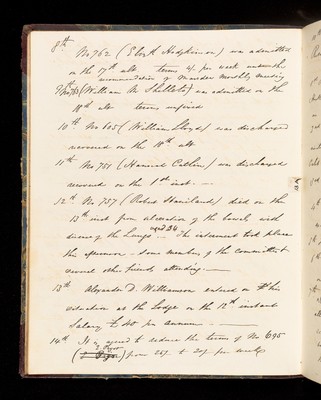 8th No 762 (Elizth Hodgkinson) was admitted
on the 17th ult terms 4/. per week under the
recommendation of Marsden Monthly Meeting
9th No 763 (William A. Shillito) was admitted on the
18th ult terms
10th No 605 (William Lloyd) was discharged
recovered on the 18th ult
11th No 751 (Hannah Catlin) was discharged
recovered on the 1st inst.
12th No 757 (Robert Stainland) died on the
13th inst from ulceration of the bowels with
disease of the Lungs aged 34 The interment took place
this afternoon some members of the committee &
several other friends attending.
13th Alexander D. Williamson entered on his
situation at the Lodge on the 12th instant
Salary £40 per annum
14th It is agreed to reduce the terms of No 695
( ) from 25/- to 20/- per week